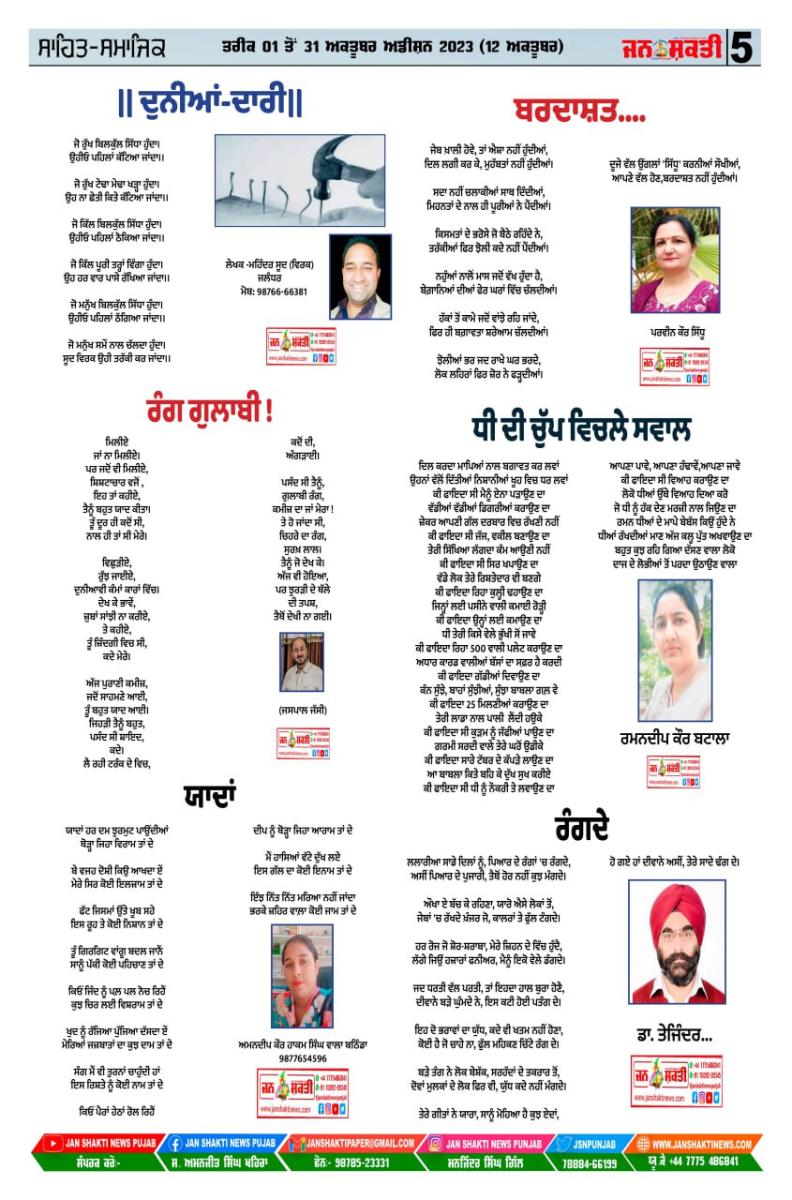 ਸਾਹਿਤ-ਸਮਾਜਿਕ
ਤਰੀਕ 01 ਤੋਂ 31 ਅਕਤੂਬਰ ਅਡੀਸ਼ਨ 2023 (12 ਅਕਤੂਬਰ)
ਜਨ ਸ਼ਕਤੀ 5
|| ਦੁਨੀਆਂ-ਦਾਰੀ||
ਜੋ ਰੁੱਖ ਬਿਲਕੁੱਲ ਸਿੱਧਾ ਹੁੰਦਾ।
ਉਹੀਓ ਪਹਿਲਾਂ ਕੱਟਿਆ ਜਾਂਦਾ।।
ਜੋ ਰੁੱਖ ਟੇਢਾ ਮੇਢਾ ਖੜ੍ਹਾ ਹੁੰਦਾ।
ਉਹ ਨਾ ਛੇਤੀ ਕਿਤੇ ਕੱਟਿਆ ਜਾਂਦਾ।।
ਜੋ ਕਿੱਲ ਬਿਲਕੁੱਲ ਸਿੱਧਾ ਹੁੰਦਾ।
ਉਹੀਓ ਪਹਿਲਾਂ ਠੋਕਿਆ ਜਾਂਦਾ।
ਜੋ ਕਿੱਲ ਪੂਰੀ ਤਰ੍ਹਾਂ ਵਿੰਗਾ ਹੁੰਦਾ।
ਉਹ ਹਰ ਵਾਰ ਪਾਸੇ ਰੱਖਿਆ ਜਾਂਦਾ।।
ਜੋ ਮਨੁੱਖ ਬਿਲਕੁੱਲ ਸਿੱਧਾ ਹੁੰਦਾ।
ਉਹੀਓ ਪਹਿਲਾਂ ਠੱਗਿਆ ਜਾਂਦਾ।
ਜੋ ਮਨੁੱਖ ਸਮੇਂ ਨਾਲ ਚੱਲਦਾ ਹੁੰਦਾ।
ਸੂਦ ਵਿਰਕ ਉਹੀ ਤਰੱਕੀ ਕਰ ਜਾਂਦਾ।।
ਲੇਖਕ -ਮਹਿੰਦਰ ਸੂਦ (ਵਿਰਕ)
ਜਲੰਧਰ
ਮੋਬ: 98766-66381
ਬਰਦਾਸ਼ਤ....
ਜੇਬ ਖ਼ਾਲੀ ਹੋਵੇ, ਤਾਂ ਐਸ਼ਾ ਨਹੀਂ ਹੁੰਦੀਆਂ,
ਦਿਲ ਲਗੀ ਕਰ ਕੇ, ਮੁਹੱਬਤਾਂ ਨਹੀਂ ਹੁੰਦੀਆਂ।
ਸਦਾ ਨਹੀਂ ਚਲਾਕੀਆਂ ਸਾਥ ਦਿੰਦੀਆਂ,
ਮਿਹਨਤਾਂ ਦੇ ਨਾਲ ਹੀ ਪੂਰੀਆਂ ਨੇ ਪੈਂਦੀਆਂ।
ਕਿਸਮਤਾਂ ਦੇ ਭਰੋਸੇ ਜੋ ਬੈਠੇ ਰਹਿੰਦੇ ਨੇ,
ਤਰੱਕੀਆਂ ਫਿਰ ਝੋਲੀ ਕਦੇ ਨਹੀਂ ਪੈਂਦੀਆਂ।
ਨਹੁੰਆਂ ਨਾਲੋਂ ਮਾਸ ਜਦੋਂ ਵੱਖ ਹੁੰਦਾ ਹੈ,
ਬੇਗ਼ਾਨਿਆਂ ਦੀਆਂ ਫੇਰ ਘਰਾਂ ਵਿੱਚ ਚੱਲਦੀਆਂ।
ਹੱਕਾਂ ਤੋਂ ਕਾਮੇ ਜਦੋਂ ਵਾਂਝੇ ਰਹਿ ਜਾਂਦੇ,
ਫਿਰ ਹੀ ਬਗ਼ਾਵਤਾ ਸ਼ਰੇਆਮ ਚੱਲਦੀਆਂ।
ਝੋਲੀਆਂ ਭਰ ਜਦ ਰਾਖੇ ਘਰ ਭਰਦੇ,
ਲੋਕ ਲਹਿਰਾਂ ਫਿਰ ਜ਼ੋਰ ਨੇ ਫੜ੍ਹਦੀਆਂ।
ਦੂਜੇ ਵੱਲ ਉਂਗਲਾਂ 'ਸਿੱਧੂ' ਕਰਨੀਆਂ ਸੌਖੀਆਂ,
ਆਪਣੇ ਵੱਲ ਹੋਣ,ਬਰਦਾਸ਼ਤ ਨਹੀਂ ਹੁੰਦੀਆਂ।
ਪਰਵੀਨ ਕੌਰ ਸਿੱਧੂ
ਰੰਗ ਗੁਲਾਬੀ !
ਮਿਲੀਏ
ਜਾਂ ਨਾ ਮਿਲੀਏ।
ਪਰ ਜਦੋਂ ਵੀ ਮਿਲੀਏ,
ਸ਼ਿਸ਼ਟਾਚਾਰ ਵਜੋਂ ,
ਇਹ ਤਾਂ ਕਹੀਏ,
ਤੈਨੂੰ ਬਹੁਤ ਯਾਦ ਕੀਤਾ।
ਤੂੰ ਦੂਰ ਹੀ ਕਦੋਂ ਸੀ,
ਨਾਲ ਹੀ ਤਾਂ ਸੀ ਮੇਰੇ।
ਵਿਛੁੜੀਏ,
ਰੁੱਝ ਜਾਈਏ,
ਦੁਨੀਆਵੀ ਕੰਮਾਂ ਕਾਰਾਂ ਵਿੱਚ।
ਦੇਖ ਕੇ ਭਾਵੇਂ,
ਜ਼ੁਬਾਂ ਸਾਂਝੀ ਨਾ ਕਰੀਏ,
ਤੇ ਕਹੀਏ,
ਤੂੰ ਜ਼ਿੰਦਗੀ ਵਿਚ ਸੀ,
ਕਦੇ ਮੇਰੇ।
ਅੱਜ ਪੁਰਾਣੀ ਕਮੀਜ਼,
ਜਦੋਂ ਸਾਹਮਣੇ ਆਈ,
ਤੂੰ ਬਹੁਤ ਯਾਦ ਆਈ।
ਜਿਹੜੀ ਤੈਨੂੰ ਬਹੁਤ,
ਪਸੰਦ ਸੀ ਸ਼ਾਇਦ,
ਕਦੇ।
ਲੈ ਰਹੀ ਟਰੰਕ ਦੇ ਵਿਚ,
ਕਦੋਂ ਦੀ,
ਅੰਗੜਾਈ।
ਪਸੰਦ ਸੀ ਤੈਨੂੰ,
ਗੁਲਾਬੀ ਰੰਗ,
ਕਮੀਜ਼ ਦਾ ਜਾਂ ਮੇਰਾ !
ਤੇ ਹੋ ਜਾਂਦਾ ਸੀ,
ਚਿਹਰੇ ਦਾ ਰੰਗ,
ਸੁਰਖ਼ ਲਾਲ।
ਤੈਨੂੰ ਜੋ ਦੇਖ ਕੇ।
ਅੱਜ ਵੀ ਹੋਇਆ,
ਪਰ ਝੁਰੜੀ ਦੇ ਥੱਲੇ
ਦੀ ਤਪਸ਼,
ਤੈਥੋਂ ਦੇਖੀ ਨਾ ਗਈ।
(ਜਸਪਾਲ ਜੱਸੀ)
ਧੀ ਦੀ ਚੁੱਪ ਵਿਚਲੇ ਸਵਾਲ
ਦਿਲ ਕਰਦਾ ਮਾਪਿਆਂ ਨਾਲ ਬਗਾਵਤ ਕਰ ਲਵਾਂ
ਉਹਨਾਂ ਵੱਲੋਂ ਦਿੱਤੀਆਂ ਨਿਸ਼ਾਨੀਆਂ ਖੂਹ ਵਿਚ ਧਰ ਲਵਾਂ
ਕੀ ਫਾਇਦਾ ਸੀ ਮੈਨੂੰ ਏਨਾ ਪੜਾਉਣ ਦਾ
ਵੱਡੀਆਂ ਵੱਡੀਆਂ ਡਿਗਰੀਆਂ ਕਰਾਉਣ ਦਾ
ਜੇਕਰ ਆਪਣੀ ਗੱਲ ਦਰਬਾਰ ਵਿਚ ਰੱਖਣੀ ਨਹੀਂ
ਕੀ ਫਾਇਦਾ ਸੀ ਜੱਜ, ਵਕੀਲ ਬਣਾਉਣ ਦਾ
ਤੇਰੀ ਸਿੱਖਿਆ ਲੱਗਦਾ ਕੰਮ ਆਉਣੀ ਨਹੀਂ
ਕੀ ਫਾਇਦਾ ਸੀ ਸਿਰ ਖਪਾਉਣ ਦਾ
ਵੱਡੇ ਲੋਕ ਤੇਰੇ ਰਿਸ਼ਤੇਦਾਰ ਵੀ ਬਣਗੇ
ਕੀ ਫਾਇਦਾ ਰਿਹਾ ਕੁਲ੍ਹੀ ਢਹਾਉਣ ਦਾ
ਜਿਨ੍ਹਾਂ ਲਈ ਪਸੀਨੇ ਵਾਲੀ ਕਮਾਈ ਰੋੜ੍ਹੀ
ਕੀ ਫਾਇਦਾ ਉਨ੍ਹਾਂ ਲਈ ਕਮਾਉਣ ਦਾ
ਧੀ ਤੇਰੀ ਕਿਸੇ ਵੇਲੇ ਭੁੱਖੀ ਸੌਂ ਜਾਵੇ
ਕੀ ਫਾਇਦਾ ਰਿਹਾ 500 ਵਾਲੀ ਪਲੇਟ ਕਰਾਉਣ ਦਾ
ਅਧਾਰ ਕਾਰਡ ਵਾਲੀਆਂ ਬੱਸਾਂ ਦਾ ਸਫ਼ਰ ਹੈ ਕਰਦੀ
ਕੀ ਫਾਇਦਾ ਗੱਡੀਆਂ ਦਿਵਾਉਣ ਦਾ
ਕੰਨ ਸੁੰਝੇ, ਬਾਹਾਂ ਸੁੰਝੀਆਂ, ਸੁੰਝਾ ਬਾਬਲਾ ਗਲ਼ ਵੇ
ਕੀ ਫਾਇਦਾ 25 ਮਿਲਣੀਆਂ ਕਰਾਉਣ ਦਾ
ਤੇਰੀ ਲਾਡਾ ਨਾਲ ਪਾਲੀ ਲੈਂਦੀ ਹਉਕੇ
ਕੀ ਫਾਇਦਾ ਸੀ ਕੁੜਮ ਨੂੰ ਜੱਫੀਆਂ ਪਾਉਣ ਦਾ
ਗਰਮੀ ਸਰਦੀ ਵਾਲੇ ਤੇਰੇ ਘਰੋਂ ਉਡੀਕੇ
ਕੀ ਫਾਇਦਾ ਸਾਰੇ ਟੱਬਰ ਦੇ ਕੱਪੜੇ ਲਾਉਣ ਦਾ
ਆ ਬਾਬਲਾ ਕਿਤੇ ਬਹਿ ਕੇ ਦੁੱਖ ਸੁਖ ਕਰੀਏ
ਕੀ ਫਾਇਦਾ ਸੀ ਧੀ ਨੂੰ ਨੌਕਰੀ ਤੇ ਲਵਾਉਣ ਦਾ
ਆਪਣਾ ਪਾਵੇ, ਆਪਣਾ ਹੰਢਾਵੇਂ,ਆਪਣਾ ਜਾਵੇ
ਕੀ ਫਾਇਦਾ ਸੀ ਵਿਆਹ ਕਰਾਉਣ ਦਾ
ਲੋਕੋ ਧੀਆਂ ਉੱਥੇ ਵਿਆਹ ਦਿਆ ਕਰੋ
ਜੋ ਧੀ ਨੂੰ ਹੱਕ ਦੇਣ ਮਰਜ਼ੀ ਨਾਲ ਜਿਉਣ ਦਾ
ਰਮਨ ਧੀਆਂ ਦੇ ਮਾਪੇ ਬੇਬੱਸ ਕਿਉਂ ਹੁੰਦੇ ਨੇ
ਧੀਆਂ ਰੱਖਦੀਆਂ ਮਾਣ ਅੱਜ ਕਲ੍ਹ ਪੁੱਤ ਅਖਵਾਉਣ ਦਾ
ਬਹੁਤ ਕੁਝ ਰਹਿ ਗਿਆ ਦੱਸਣ ਵਾਲਾ ਲੋਕੋ
ਦਾਜ ਦੇ ਲੋਭੀਆਂ ਤੋਂ ਪਰਦਾ ਉਠਾਉਣ ਵਾਲਾ
ਰਮਨਦੀਪ ਕੌਰ ਬਟਾਲਾ
ਯਾਦਾਂ
ਯਾਦਾਂ ਹਰ ਦਮ ਝੁਰਮੁਟ ਪਾਉਂਦੀਆਂ
ਥੋੜ੍ਹਾ ਜਿਹਾ ਵਿਰਾਮ ਤਾਂ ਦੇ
ਬੇ ਵਜਹ ਦੋਸ਼ੀ ਕਿਉ ਆਖਦਾ ਏਂ
ਮੇਰੇ ਸਿਰ ਕੋਈ ਇਲਜ਼ਾਮ ਤਾਂ ਦੇ
ਫੱਟ ਜਿਸਮਾਂ ਉੱਤੇ ਖੂਬ ਸਹੇ
ਇਸ ਰੂਹ ਤੇ ਕੋਈ ਨਿਸ਼ਾਨ ਤਾਂ ਦੇ
ਤੂੰ ਗਿਰਗਿਟ ਵਾਂਗੂ ਬਦਲ ਜਾਨੈਂ
ਸਾਨੂੰ ਪੱਕੀ ਕੋਈ ਪਹਿਚਾਣ ਤਾਂ ਦੇ
ਕਿਓਂ ਜਿੰਦ ਨੂੰ ਪਲ਼ ਪਲ ਨੋਚ ਰਿਹੈਂ
ਕੁਝ ਚਿਰ ਲਈ ਵਿਸ਼ਰਾਮ ਤਾਂ ਦੇ
ਖੁਦ ਨੂੰ ਰੱਜਿਆ ਪੁੱਜਿਆ ਦੱਸਦਾ ਏਂ
ਮੇਰਿਆਂ ਜਜ਼ਬਾਤਾਂ ਦਾ ਕੁਝ ਦਾਮ ਤਾਂ ਦੇ
ਸੰਗ ਮੈਂ ਵੀ ਤੁਰਨਾਂ ਚਾਹੁੰਦੀ ਹਾਂ
ਇਸ ਰਿਸ਼ਤੇ ਨੂੰ ਕੋਈ ਨਾਮ ਤਾਂ ਦੇ
ਕਿਓਂ ਪੈਰਾਂ ਹੇਠਾਂ ਰੋਲ ਰਿਹੈਂ
ਦੀਪ ਨੂੰ ਥੋੜ੍ਹਾ ਜਿਹਾ ਆਰਾਮ ਤਾਂ ਦੇ
ਮੈਂ ਹਾਸਿਆਂ ਵੱਟੇ ਦੁੱਖ ਲਏ
ਇਸ ਗੱਲ ਦਾ ਕੋਈ ਇਨਾਮ ਤਾਂ ਦੇ
ਇੰਝ ਨਿੱਤ ਨਿੱਤ ਮਰਿਆ ਨਹੀਂ ਜਾਂਦਾ
ਭਰਕੇ ਜ਼ਹਿਰ ਵਾਲਾ ਕੋਈ ਜਾਮ ਤਾਂ ਦੇ
ਅਮਨਦੀਪ ਕੌਰ ਹਾਕਮ ਸਿੰਘ ਵਾਲਾ ਬਠਿੰਡਾ
9877654596
ਰੰਗਦੇ
ਲਲਾਰੀਆ ਸਾਡੇ ਦਿਲਾਂ ਨੂੰ, ਪਿਆਰ ਦੇ ਰੰਗਾਂ 'ਚ ਰੰਗਦੇ,
ਅਸੀਂ ਪਿਆਰ ਦੇ ਪੁਜਾਰੀ, ਤੈਥੋਂ ਹੋਰ ਨਹੀਂ ਕੁਝ ਮੰਗਦੇ।
ਔਖਾ ਏ ਬੱਚ ਕੇ ਰਹਿਣਾ, ਯਾਰੋ ਐਸੇ ਲੋਕਾਂ ਤੋਂ,
ਜੇਬਾਂ 'ਚ ਰੱਖਦੇ ਖ਼ੰਜ਼ਰ ਜੋ, ਕਾਲਰਾਂ ਤੇ ਫੁੱਲ ਟੰਗਦੇ।
ਹਰ ਰੋਜ ਜੋ ਸ਼ੋਰ-ਸ਼ਰਾਬਾ, ਮੇਰੇ ਜ਼ਿਹਨ ਦੇ ਵਿੱਚ ਹੁੰਦੈ,
ਲੱਗੇ ਜਿਉਂ ਹਜ਼ਾਰਾਂ ਫਨੀਅਰ, ਮੈਨੂੰ ਇਕੋ ਵੇਲੇ ਡੰਗਦੇ।
ਜਦ ਧਰਤੀ ਵੱਲ ਪਰਤੀ, ਤਾਂ ਇਹਦਾ ਹਾਲ ਬੁਰਾ ਹੋਣੈ,
ਦੀਵਾਨੇ ਬੜੇ ਘੁੰਮਦੇ ਨੇ, ਇਸ ਕਟੀ ਹੋਈ ਪਤੰਗ ਦੇ।
ਇਹ ਦੋ ਭਰਾਵਾਂ ਦਾ ਯੁੱਧ, ਕਦੇ ਵੀ ਖਤਮ ਨਹੀਂ ਹੋਣਾ,
ਕੋਈ ਹੈ ਜੋ ਚਾਹੇ ਨਾ, ਫੁੱਲ ਮਹਿਕਣ ਚਿੱਟੇ ਰੰਗ ਦੇ।
ਬੜੇ ਤੰਗ ਨੇ ਲੋਕ ਬੇਸ਼ੱਕ, ਸਰਹੱਦਾਂ ਦੇ ਤਕਰਾਰ ਤੋਂ,
ਦੋਵਾਂ ਮੁਲਕਾਂ ਦੇ ਲੋਕ ਫਿਰ ਵੀ, ਯੁੱਧ ਕਦੇ ਨਹੀਂ ਮੰਗਦੇ।
ਤੇਰੇ ਗੀਤਾਂ ਨੇ ਯਾਰਾ, ਸਾਨੂੰ ਮੋਹਿਆ ਹੈ ਕੁਝ ਏਦਾਂ,
ਹੋ ਗਏ ਹਾਂ ਦੀਵਾਨੇ ਅਸੀਂ, ਤੇਰੇ ਸਾਦੇ ਢੰਗ ਦੇ।
ਡਾ. ਤੇਜਿੰਦਰ...
ਜਨ ਸ਼ਕਤੀ
www.janshaktinews.com
JAN SHAKTI NEWS PUJAB
JAN SHAKTI NEWS PUJAB
JANSHAKTIPAPER@GMAIL.COM
JAN SHAKTI NEWS PUJAB
JSNPUNJAB
WWW.JANSHAKTINEWS.COM
ਸੰਪਰਕ ਕਰੋ:-
ਸ. ਅਮਨਜੀਤ ਸਿੰਘ ਖਹਿਰਾ
ਫੋਨ:- 98785-23331
ਮਨਜਿੰਦਰ ਸਿੰਘ ਗਿੱਲ
78884-66199
ਯੂ.ਕੇ +44 7775 486841